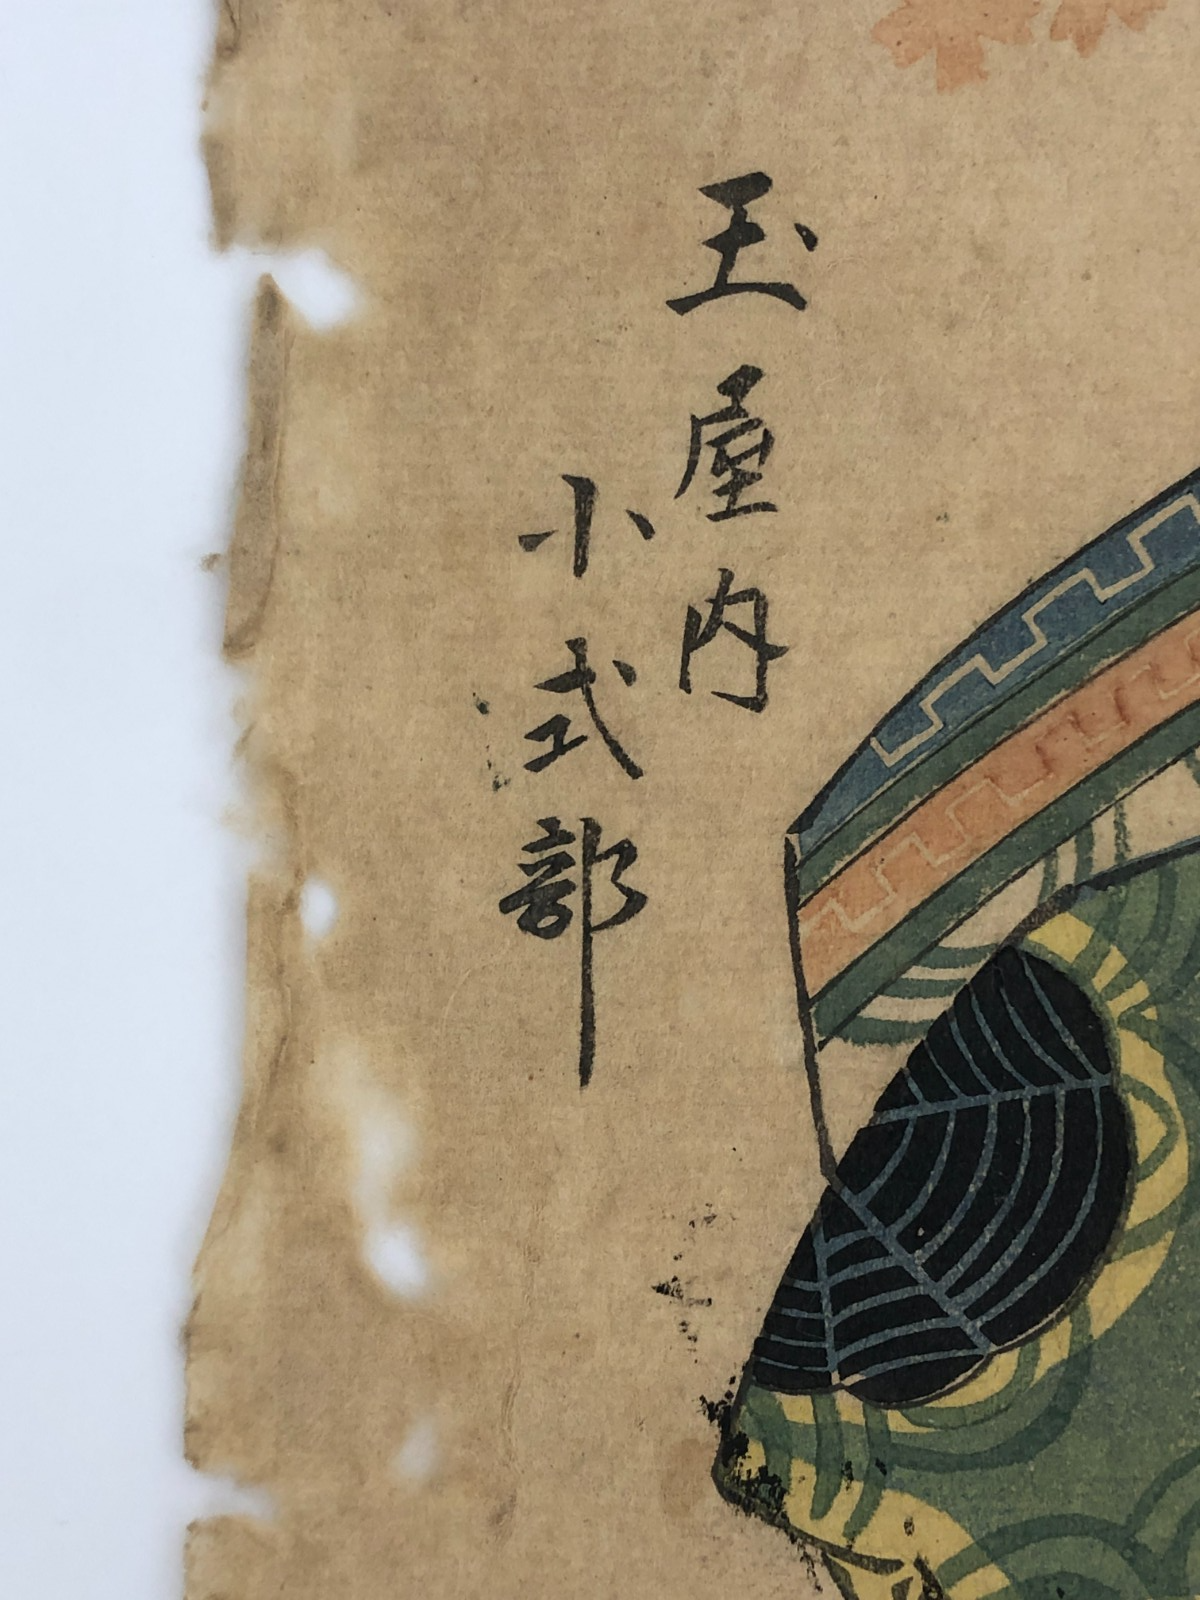 玉屋内
小式部